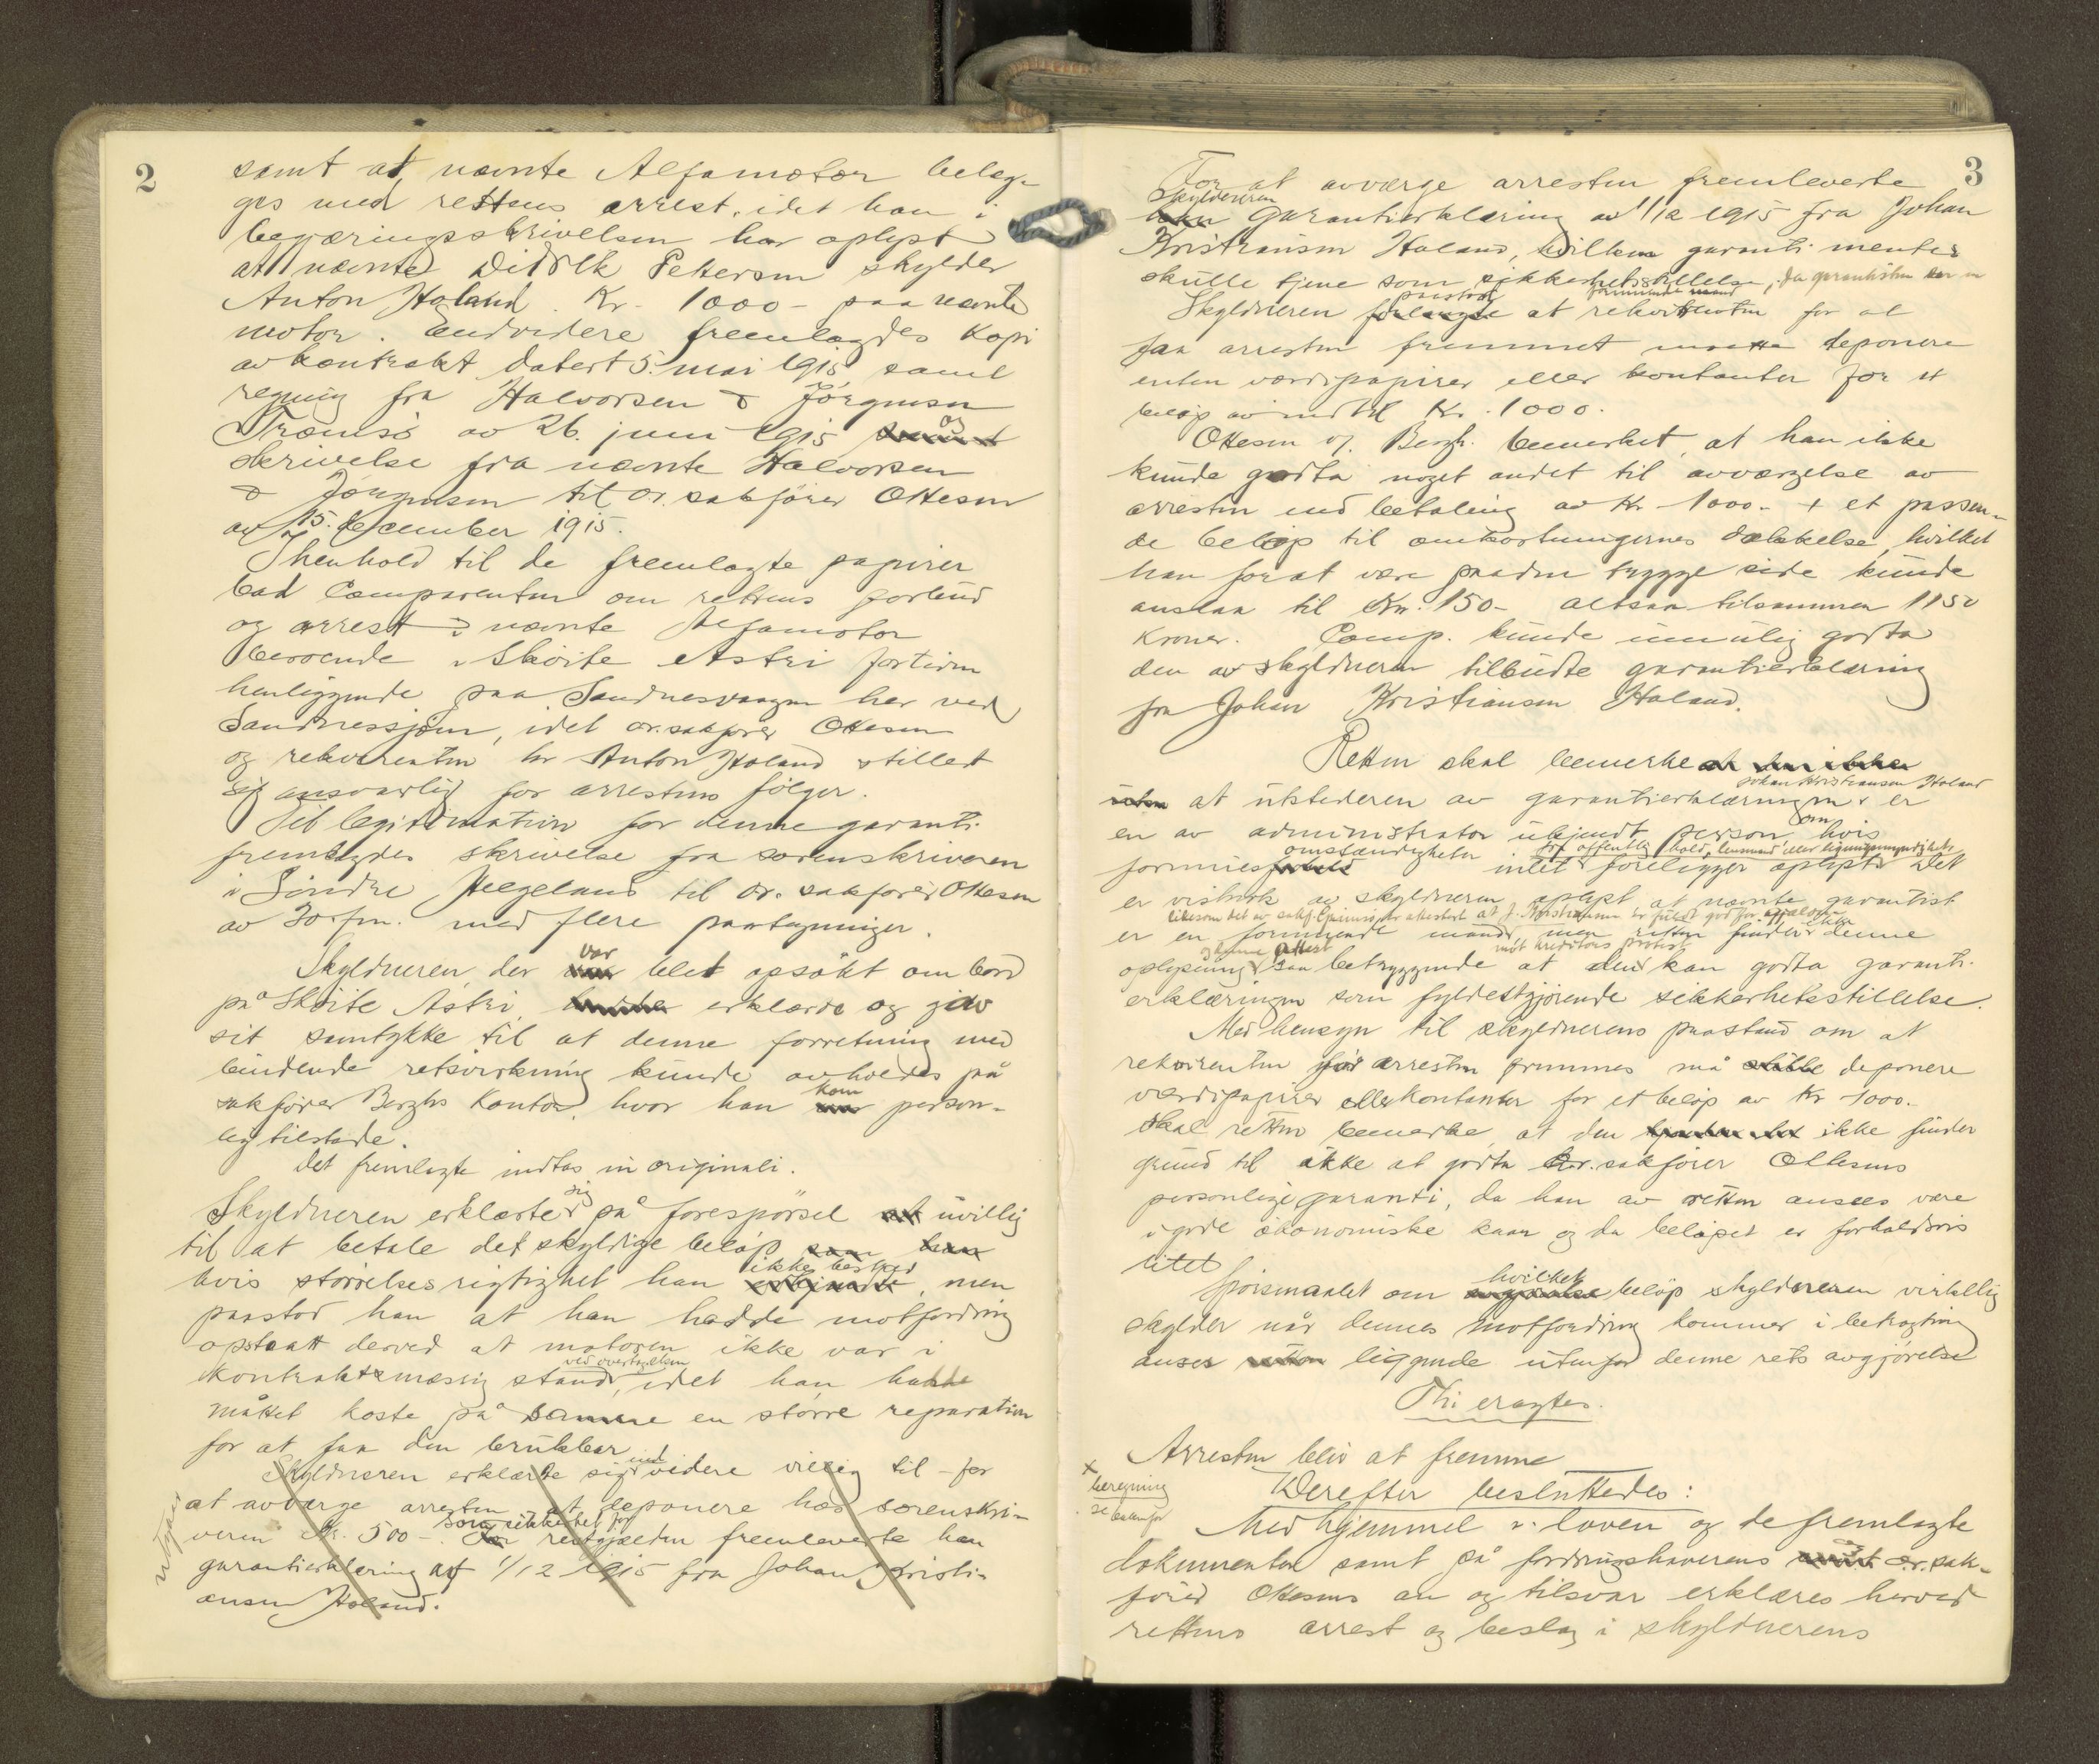 2
samt at nævnte Alfamotor belæg-
ges med rettens arrest, idet han i
begjæringsskrivelsen har oplyst
at nævnte Didrik Pettersen skylder
Anton Haland Kr. 1000 - paa nævnte
motor. Endvidere fremlagdes Kopi
av kontrakt datert 5. mai 1915 samt
regning fra Halvorsen & Jörgensen
Tromsö av 26. juni 1915 og
skrivelse fra nævnte Halvorsen
& Jörgensen til or. sakförer Ottesen
av 15. december 1915.
I henhold til de fremlagte papirer
bad Comparenten om rettens forbud
og arrest i nævnte Alfamotor
beroende i Sköite Astri fortiden
henliggende paa Sandnesvaagen her ved
Sandnessjöen, idet or. sakförer Ottesen
og rekvirenten hr Anton Haland stillet
sig ansvarlig for arrestens fölger.
Til legitimation for denne garanti
fremlagdes skrivelse fra sorenskriveren
i Söndre Helgeland til or. sakförer Ottesen
av 30 fm. med flere paategninger.
Skyldneren, der var blet opsökt om bord
på Sköite Astri erklærde og gav
sit samtykke til at denne forretning med
bindende retsvirkning kunde avholdes på
sakförer Berghs Kontor, hvor han kom person-
lig tilstede.
Det fremlagte indtas in originali.
Skyldneren erklærte sig på forespörsel uvillig
til at betale det skyldige belöp
hvis störrelses rigtighet han ikke bestred, men
paastod han at han hadde motfordring
opstaatt derved at motoren ikke var i
kontraktsmæssig stand ved overtagelsen, idet han hadde
måttet koste på samme en större reparation
for at faa den brukbar.
Skyldneren erklærte sig videre villig til - for
at avværge arresten - at deponere hos sorenskri-
veren Kr. 500 -. Som sikkerhet for restgjælden fremleverte han
garantierklæring af 1/12 1915 fra Johan Kristi-
ansen Haland.
utgaar
3
For at avværge arresten fremleverte
Skyldneren Garantierklæring av 1/12 1915 fra Johan
Kristiansen Haland, hvilken garanti mentes
skulle tjene som sikkerhetsstillelse, da garantisten er en
formuende mand
Skyldneren paastod at rekvirenten for at
faa arresten fremmet maatte deponere
enten værdipapirer eller kontanter for et
belöp av indtil Kr. 1000.
Ottesen og Bergh. bemerket at han ikke
kunde godta noget andet til avværgelse av
arresten end betaling av Kr 1000.- + et passen-
de belöp til omkostningernes dækkelse, hvilket
han for at være paa den trygge side kunde
anslaa til Kr. 150 - altsaa tilsammen 1150
Kroner. Comp. kunde umulig godta
den av skyldneren tilbudte garantierklæring
fra Johan Kristiansen Haland.
Retten skal bemerke
at utstederen av garantierklæringen Johan Kristiansen Haland er
en av administrator ukjendt person, om hvis
formuesomstændigheter intet fra offentlig hold, lensmand eller ligningsmyndighets foreligger oplyst. Det
er vistnok av skyldneren oplyst at nævnte garantist
er en formuende mand, men retten finder ikke denne
oplysning saa betryggende at den mot kreditors protest kan godta garanti-
erklæringen som fyldestgjörende sikkerhetsstillelse.
Med hensyn til skyldnerens paastand om at
rekvirenten för arresten fremmes må deponere
værdipapirer eller kontanter for et belöp av Kr 1000.-
skal retten bemerke, at den ikke finder
grund til ikke at godta or. sakförer Ottesens
personlige garanti, da han av retten ansees være
i gode ökonomiske kaar og da belöpet er forholdsvis
litet
Spörsmaalet om hvilket belöp skyldneren virkelig
skylder når dennes motfordring kommer i betragtning
anses liggende utenfor denne rets avgjörelse
Thi eragtes.
Arresten blir at fremme
Derefter besluttedes:
× beregning
se
Med hjemmel i loven og de fremlagte
dokumenter samt på fordringshaverens or. sak-
förer Ottesens an og tilsvar erklæres herved
rettens arrest og beslag i skyldnerens